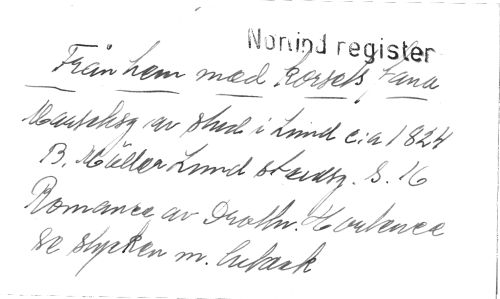 Norlind register
Från hem med Korsets fana
Marschsg av stud i Lund c:a 1824
B. Möller Lund studsg. S. 16
Romance av Drottn. Hortence
se stycken m. luta